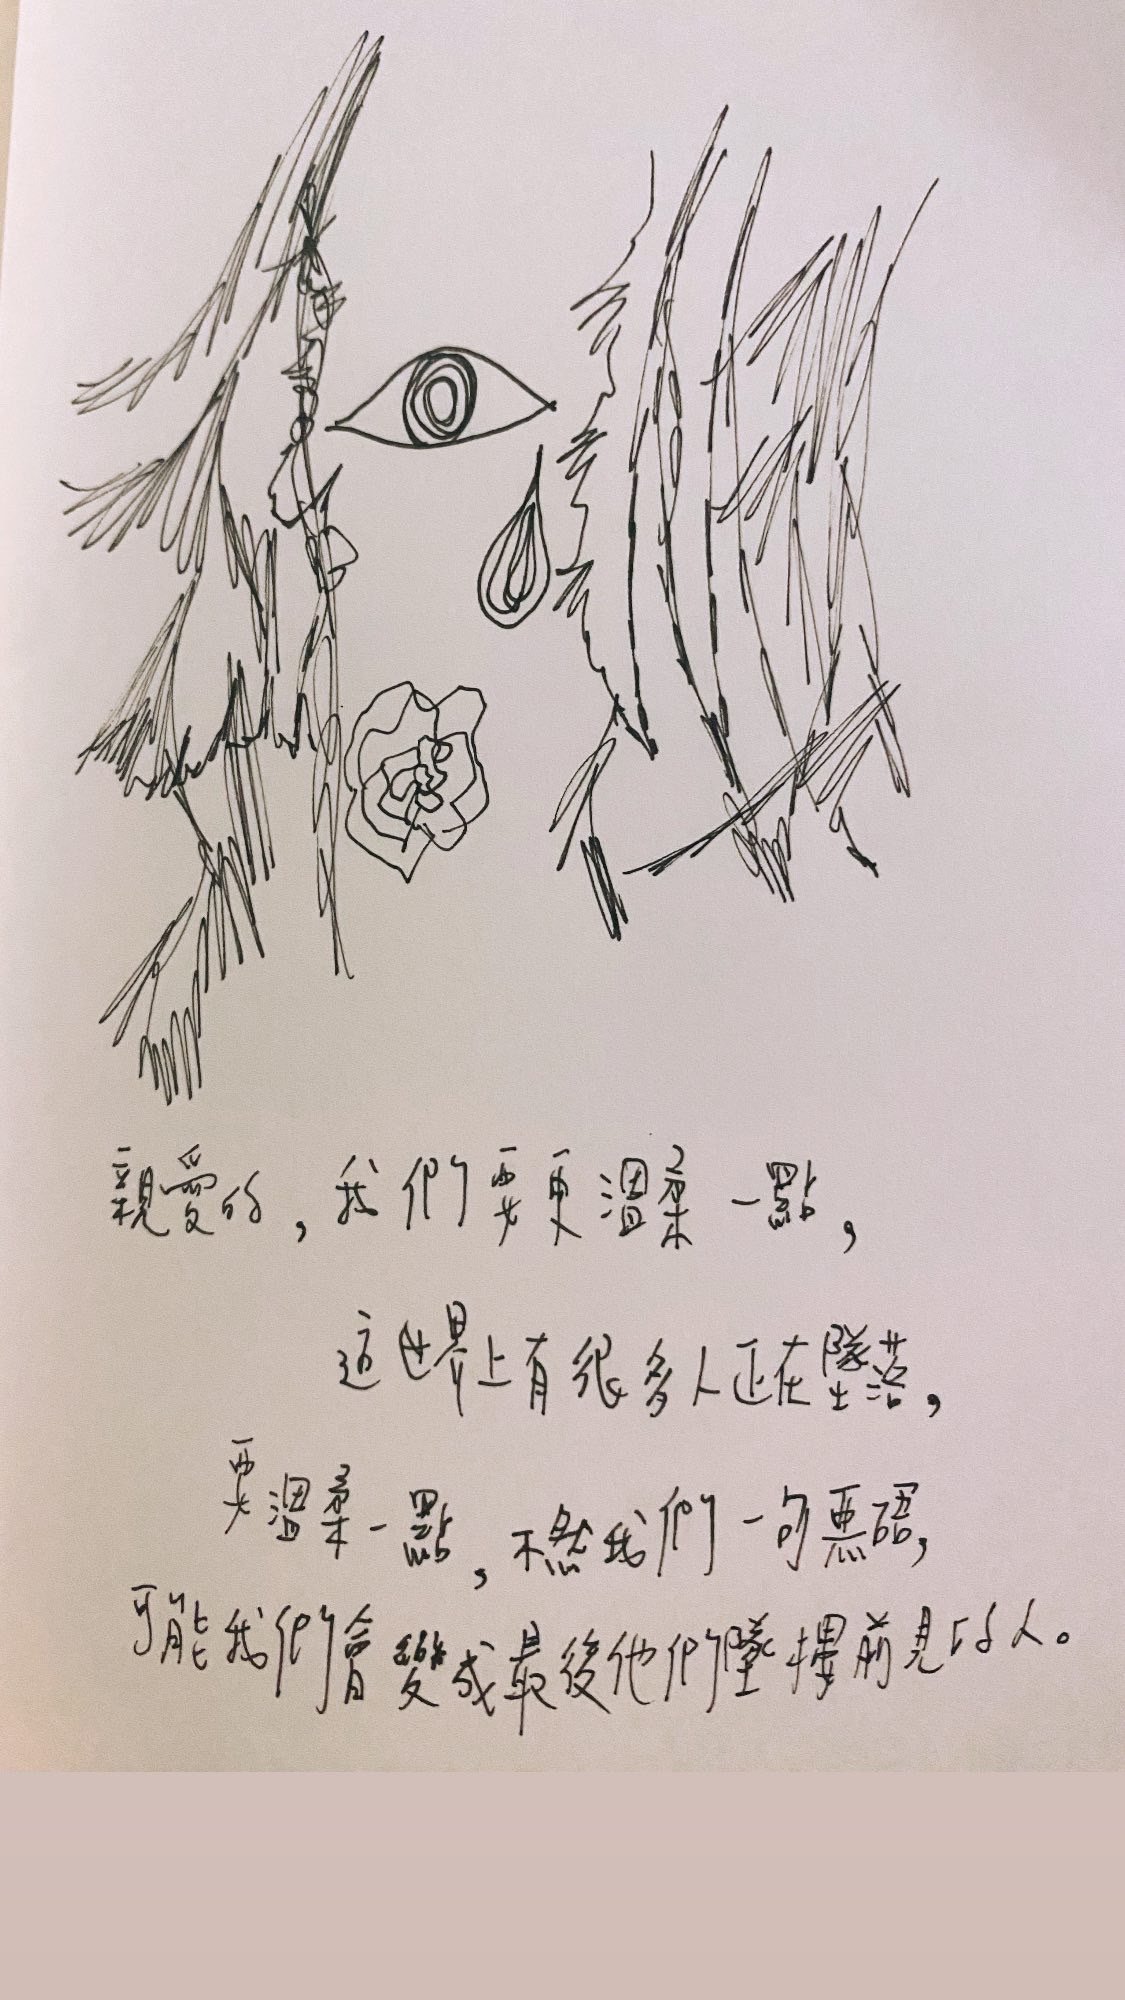 親愛的,我們要更溫柔一點,
這世界上有很多人正在墜落,
要溫柔一點,不然我們一句惡語,
可能我們會變成最後他們墜樓前見的人。